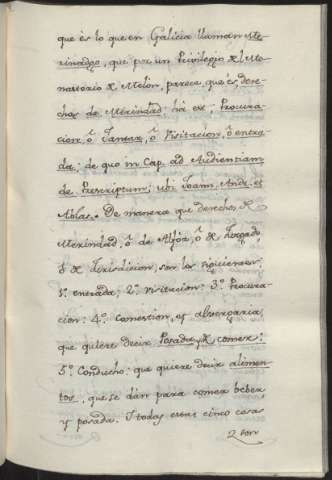 que ès lo que en Galicia llaman Me-
rinadgo, que por un Privilegio de el Mo-
nasterio de Melòn, parece que ès, dere-
chos de Merindad: hâ est; Procura-
cion, ô Jantar, ô Visitacion, ô entra-
da; de quo in Cap. ad Audientiam
de Præscriptum; ubi Joann. Andr. et
Aòlas. De manera que derechos de
Merindad, ô de Alfòz, ô de Juzgado,
ô de Jurisdicion, son los siguientes:
1º entrada; 2º visitacion; 3º Procura-
cion; 4º Comestion, et alvergaria,
que quiere decir Posadas, y comer;
5º Conducho: que quiere decir alimen-
tos, que se dàn para comer beber,
y posada. Y todas estas cinco cosas
son